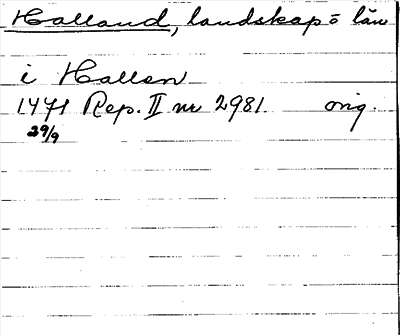 Halland, landskap o län
i Hallen
1471 Rep. II nr 2981. orig.
29/9